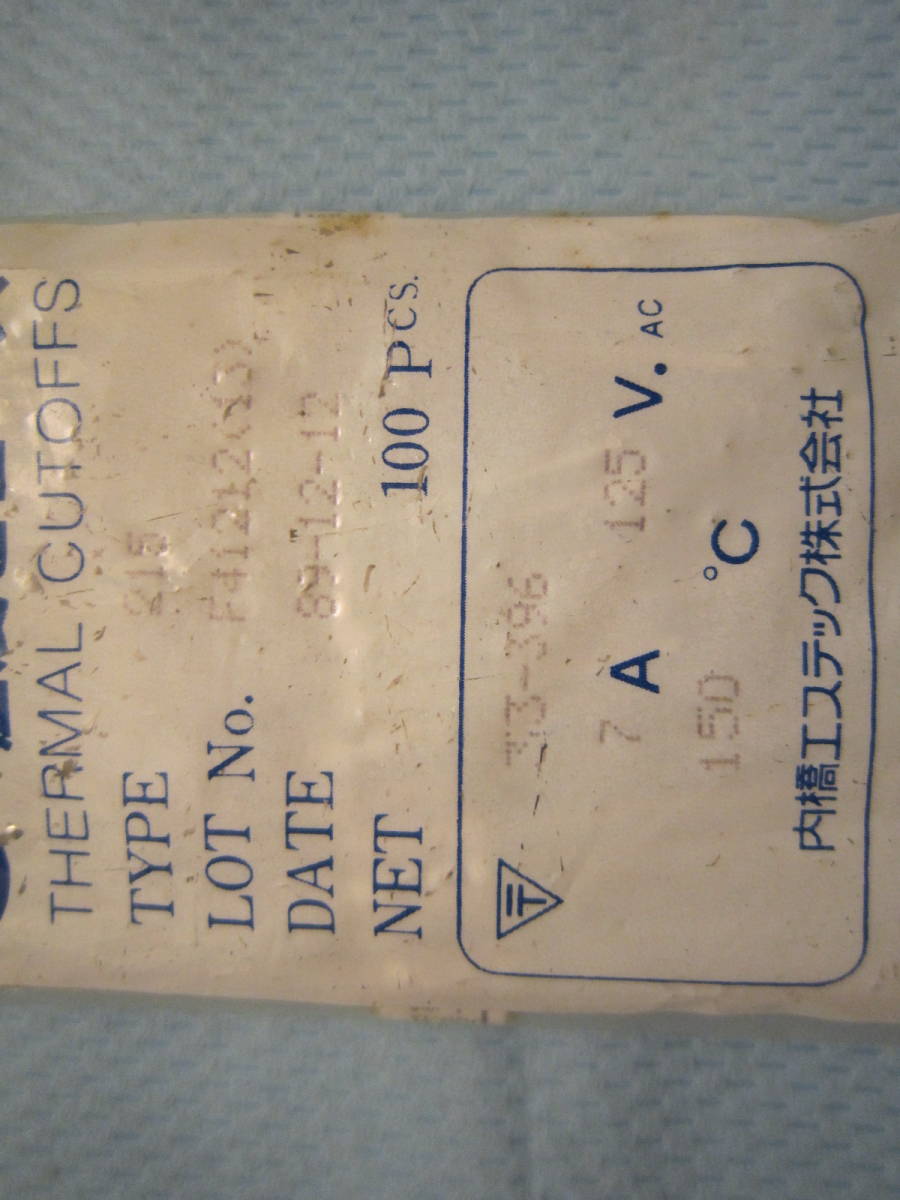 THERMAL CUTOFFS
TYPE 215
LOT No.
DATE 89-12-12
NET 100 PCS.
〒 33-396
7 A 125 V. AC
150 °C
内橋エステック株式会社